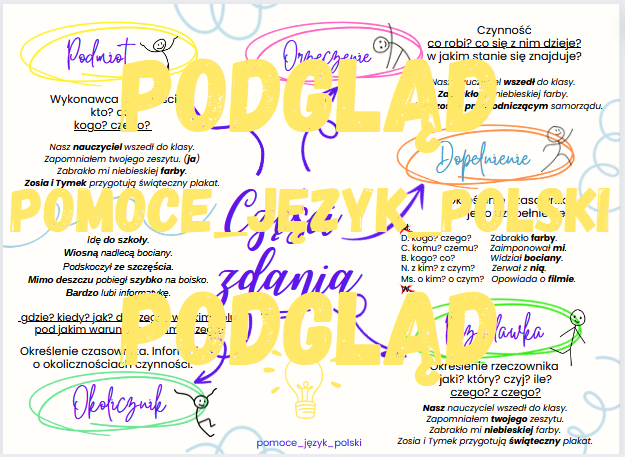 Podmiot
Wykonawca
kto?
kogo? czego?
Nasz nauczyciel wszedł do klasy.
Zapomniałem twojego zeszytu. (ja)
Zabrakło mi niebieskiej farby.
Zosia i Tymek przygotują świąteczny plakat.
Orzeczenie
Czynność
co robi? co się z nim dzieje?
w jakim stanie się znajduje?
Nasz nauczyciel wszedł do klasy.
niebieskiej farby.
samorządu.
PODGLĄD
Dopełnienie
POMOCE_JĘZYK_POLSKI
Części
zdania
D. kogo? czego? Zabrakło farby.
C. komu? czemu? Zaimponował mi.
B. kogo? co? Widział bociany.
N. z kim? z czym? Zerwał z nią.
Ms. o kim? o czym? Opowiada o filmie.
W.
Idę do szkoły.
Wiosną nadlecą bociany.
Podskoczył ze szczęścia.
Mimo deszczu pobiegł szybko na boisko.
Bardzo lubi informatykę.
PODGLĄD
gdzie? kiedy? jak?
pod jakim
Określenie czasownika.
o okolicznościach czynności.
Okolicznik
Przydawka
Określenie rzeczownika
jaki? który? czyj? ile?
czego? z czego?
Nasz nauczyciel wszedł do klasy.
Zapomniałem twojego zeszytu.
Zabrakło mi niebieskiej farby.
Zosia i Tymek przygotują świąteczny plakat.
pomoce_język_polski